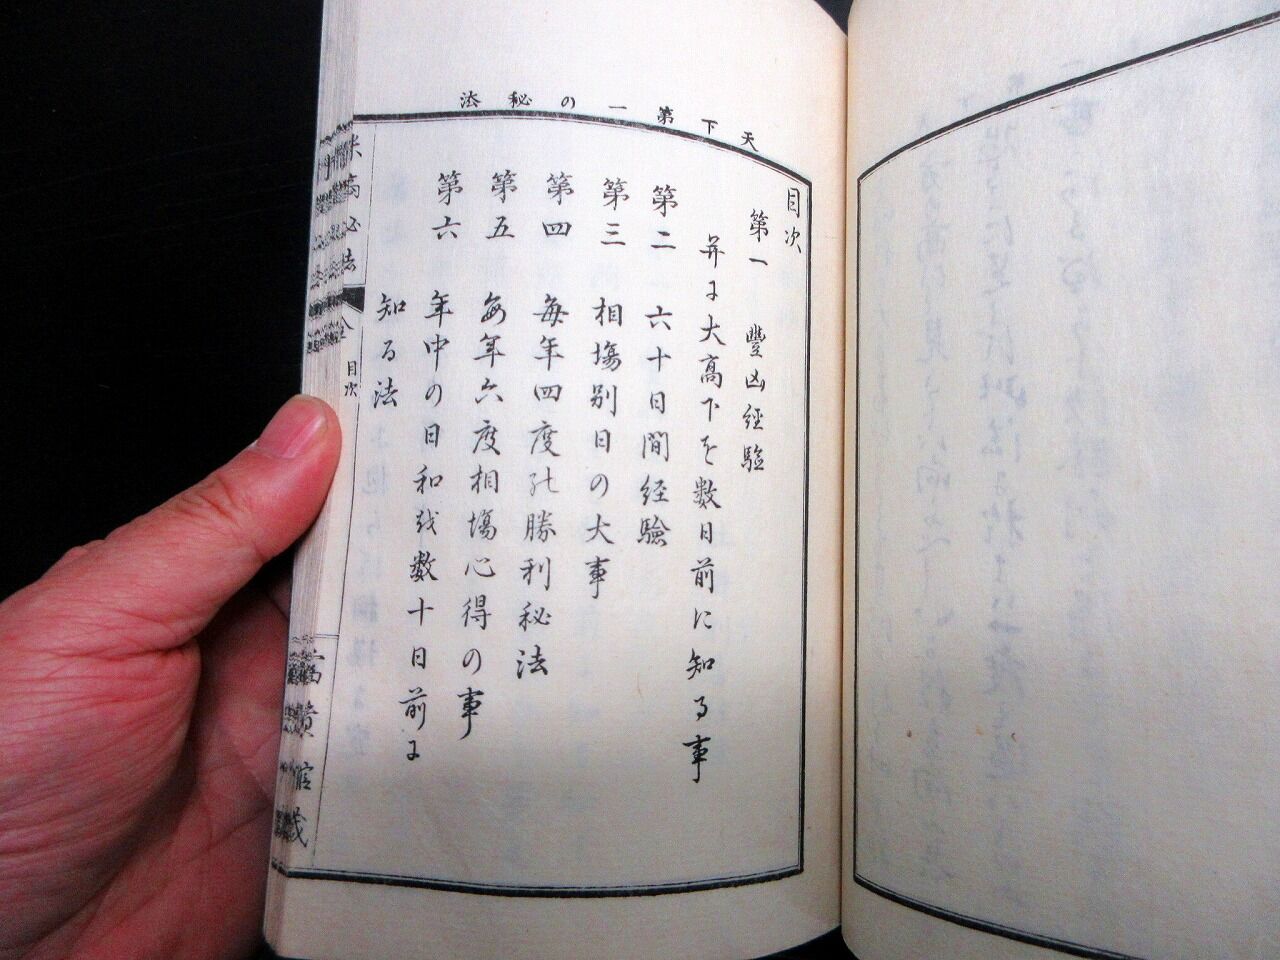 天下第一の秘法
目次
第一 豐凶経験
并に大高下を数日前に知る事
第二 六十日間経驗
第三 相塲別日の大事
第四 每年四度の勝利秘法
第五 每年六度相塲心得の事
第六 年中の日和を数十日前に
知る法
目次